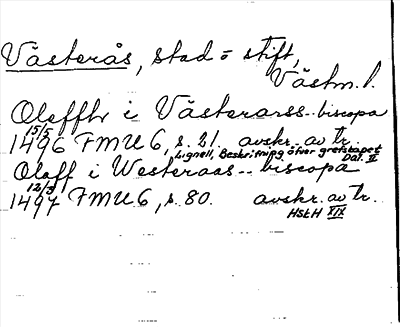 Västerås, stad o stift,
Västm. l.
Oleffhr i Västerarss.. biscopa
15/5
1496 FMU 6, s. 21. avskr. av tr.
Lignell, Beskrifning öfver grefskapet
Dal. II
Olaff i Westeraas.. biscopa
12/3
1497 FMU 6, s. 80. avskr. av tr.
HSH XIX